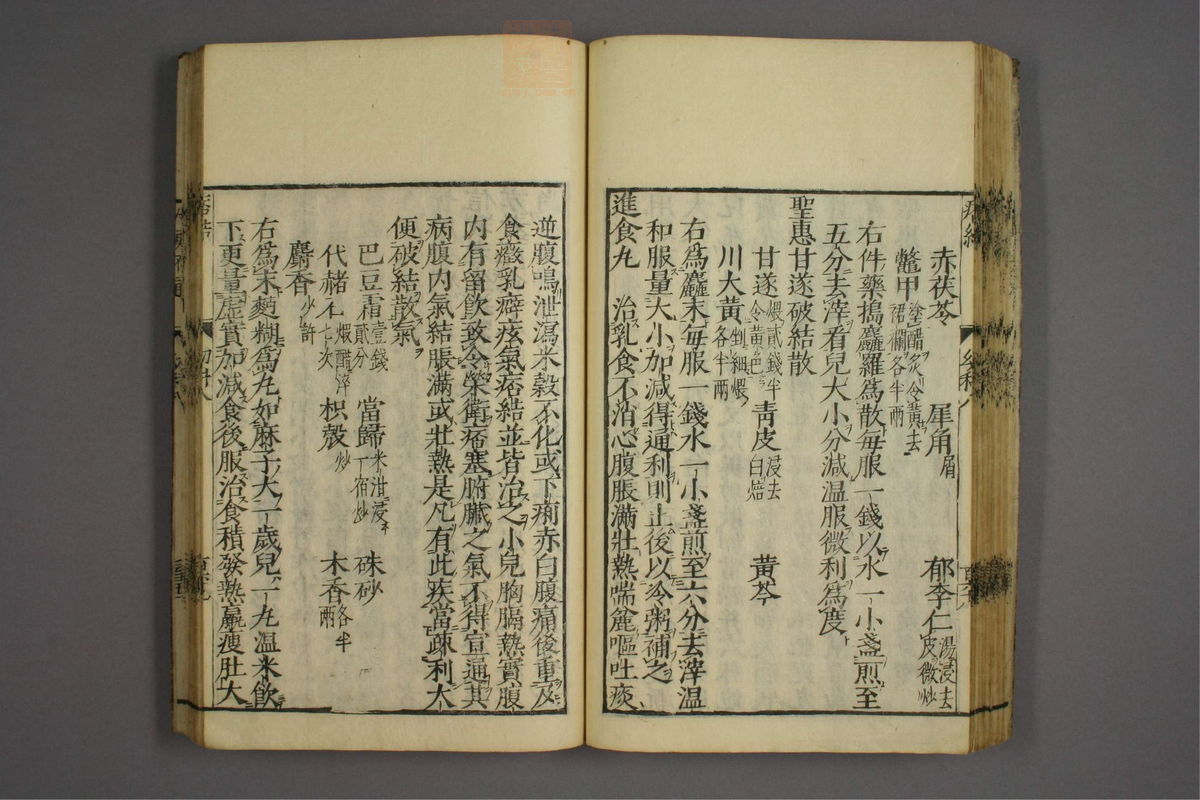 赤茯苓
鼈甲 塗醋炙令黃去裙襴各半兩 犀角屑 郁李仁 湯浸去皮微炒
右件藥搗麤羅爲散每服一錢以水一小盞煎至
五分去滓看兒大小分減温服微利爲度
聖惠甘遂破結散
甘遂 煨貳錢半令黃色 青皮 浸去白焙 黃芩
川大黃 剉細煨各半兩
右爲麤末每服一錢水一小盞煎至六分去滓温
和服量大小加減得通利則止後以冷粥補之
進食丸 治乳食不消心腹脹滿壯熱喘麄嘔吐痰
逆腹鳴泄瀉米穀不化或下痢赤白腹痛後重及
食癥乳癖痃氣痞結並皆治之小兒胸膈熱實腹
内有留飲致令榮衛痞塞腑臓之氣不得宣通其
病腹内氣結脹滿或壯熱是凡有此疾當疎利大
便破結散氣
巴豆霜 壹錢貳分 當歸 米泔浸一宿炒 硃砂
代赭石 煆醋淬七次 枳殼 炒 木香 各半兩
麝香 少許
右爲末麪糊爲丸如麻子大一歲兒一丸温米飲
下更量虛實加減食後服治食積發熱羸瘦肚大